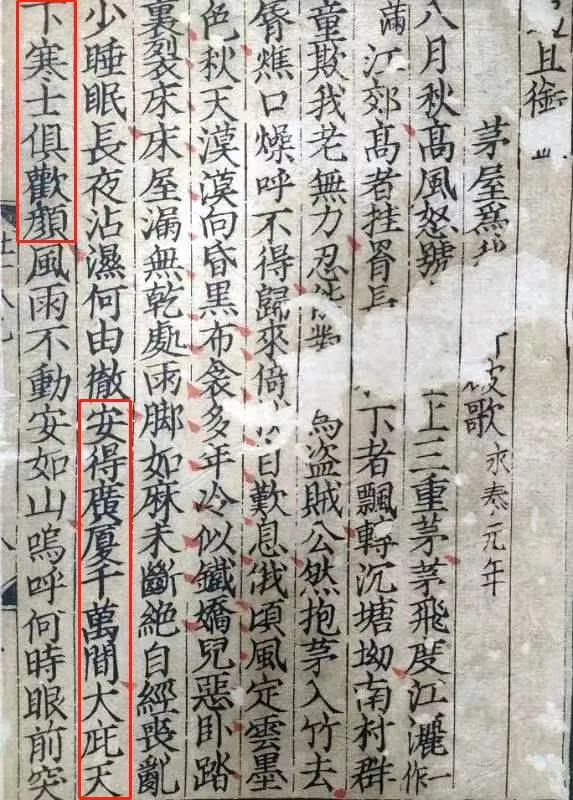 且銜
茅屋爲歌永泰元年
八月秋髙風怒號上三重茅茅飛度江灑一作
滿江郊髙者挂罥長下者飄轉沉塘坳南村群
童欺我老無力忍能對爲盗賊公然抱茅入竹去
脣燋口燥呼不得歸來倚自歎息俄頃風定雲墨
色秋天漠漠向昏黒布衾多年冷似鐵嬌兒惡卧踏
裏裂床床屋漏無乾處雨脚如麻未斷絶自經喪亂
少睡眠長夜沾濕何由徹安得廣厦千萬間大庇天
下寒士俱歡顔風雨不動安如山嗚呼何時眼前突